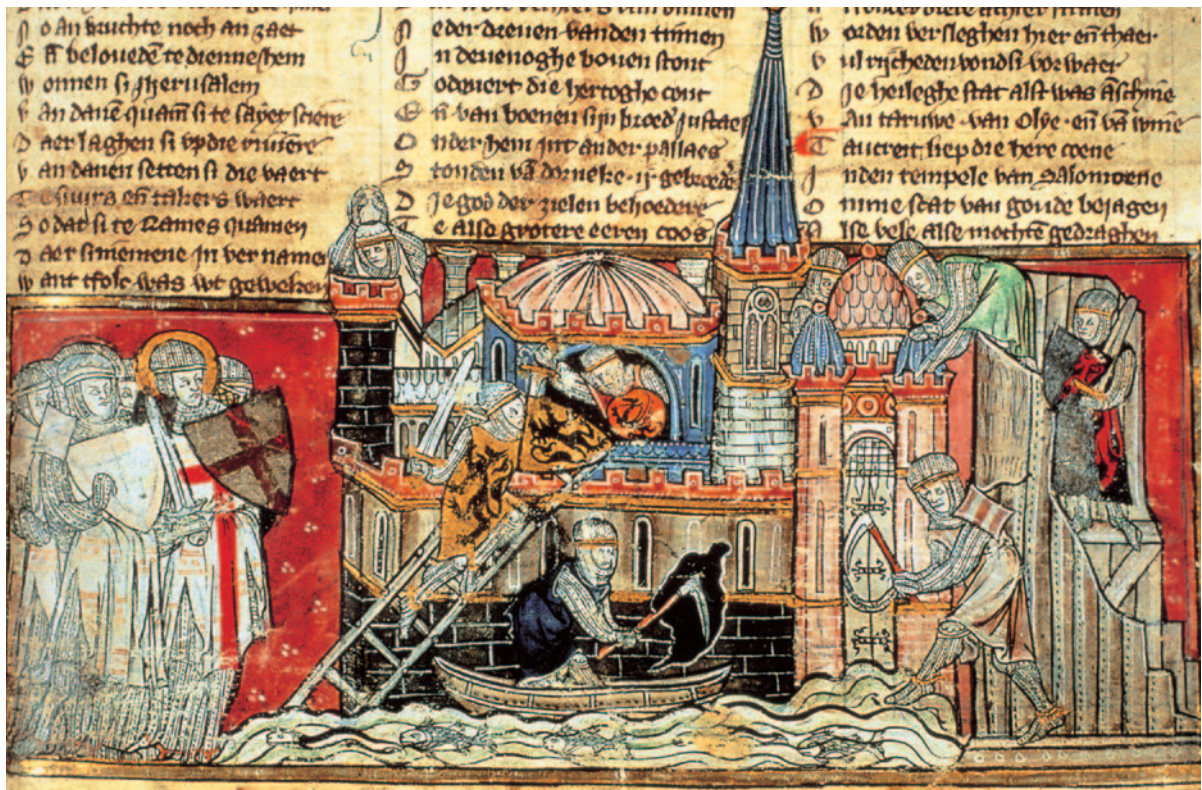 No an vruchte noch an zaet
En̄ belouedē te dienne hem
wonnen si Jherusalem
van danē quamē si te sayet sciere
Daer laghen si vp die riuiere
van danen setten si die vaert
en̄ takers waert
So dat si te Rames quamen
Daer si niemene in vername
want tfolc was wt geweken
Neder dreuen van den tinnen
In bouen stont
Godeuert die hertoghe cont
En̄ van boenen sijn broed' justaes
Onder hem int ander pallaes
Stonden vā dorneke .ij. gebroed'e
Die god der zielen behoedere
Te also grotere eeren coos
worden versleghen hier en̄ thaer
vul rijcheden vondsi vor waer
Die heileghe stat alst was āschine
Van taruwe van Olye en̄ vā wine
liep die here coene
Inden tempele van Salomoene
Omme scat van goude beiagen
Alse vele alse mochtē gedraghen